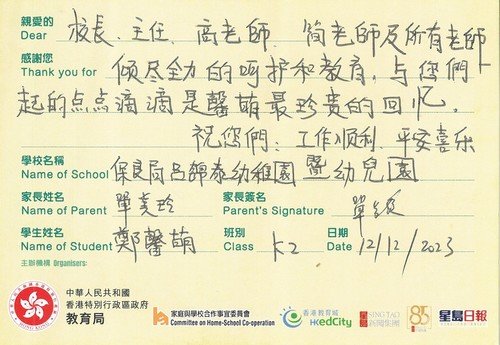 親愛的
Dear 校长、主任、高老師、簡老師及所有老師
感謝您
Thank you for 倾尽全力的呵护和教育,与您们一
起的点点滴滴是馨萌最珍贵的回忆。
祝您們:工作順利、平安喜乐
學校名稱
Name of School 保良局呂錦泰幼稚園暨幼兒園
家長姓名 家長簽名
Name of Parent 單美玲 Parent's Signature 單
學生姓名 班別 日期
Name of Student 鄭馨萌 Class K2 Date 12/12/2023
主辦機構 Organisers:
中華人民共和國
香港特別行政區政府
教育局
家庭與學校合作事宜委員會
Committee on Home-School Co-operation
香港教育城
HKedCity
SING TAO
星島新聞集團
85
星島日報
HONG KONG